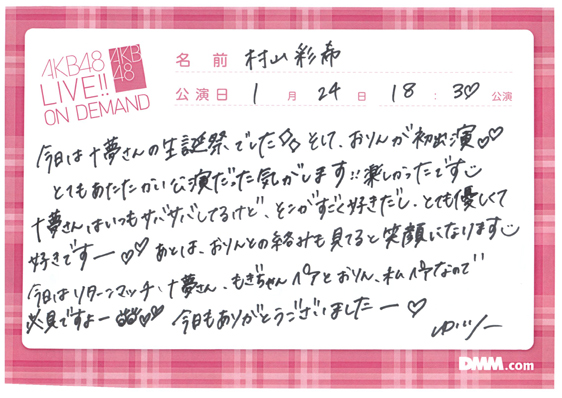 AKB48
LIVE!!
ON DEMAND
AKB
48
名前 村山彩希
公演日 1月24日 18:30♡公演
今日は十夢さんの生誕祭でした◇◇そして、おりんが初出演♡♡
とてもあたたかい公演だった気がします!!楽しかったです
十夢さんはいつもサバサバしてるけど、そこがすごく好きだし、とても優しくて
好きですー♡♡ あとは、おりんとの絡みも見てると笑顔になります
今日はリターンマッチ、十夢さん、もぎちゃんペアとおりん、私ペアなので
必見ですよー♡♡ 今日もありがとうございましたー♡
ゆいりー
DMM.com